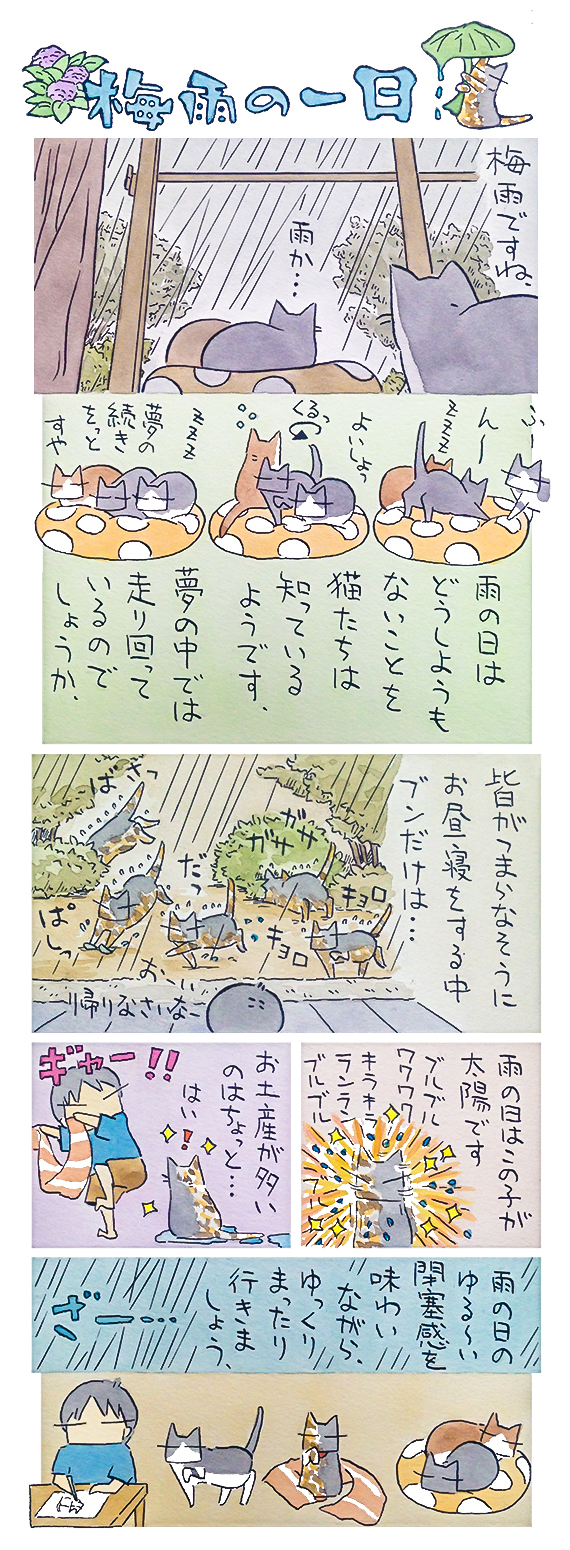 梅雨の一日
梅雨ですね、
雨か…
ふー
ん～
zzz
よいしょっ
くるっ
zzz
夢の
続き
をっと
すや
雨の日は
どうしようも
ないことを
猫たちは
知っている
ようです、
夢の中では
走り回って
いるので
しょうか、
皆がつまらなそうに
お昼寝をする中
ブンだけは…
ばさっ
ガサ
ガサ
だっ
キョロ
キョロ
ぱしっ
おーい
帰りなさいなー
雨の日はこの子が
太陽です
ブルブル
ワクワク
キラキラ
ランラン
ブルブル
お土産が多い
のはちょっと…
はい!
ギャー!!
雨の日の
ゆる～い
閉塞感を
味わい
ながら、
ゆっくり
まったり
行きま
しょう、
ざー…